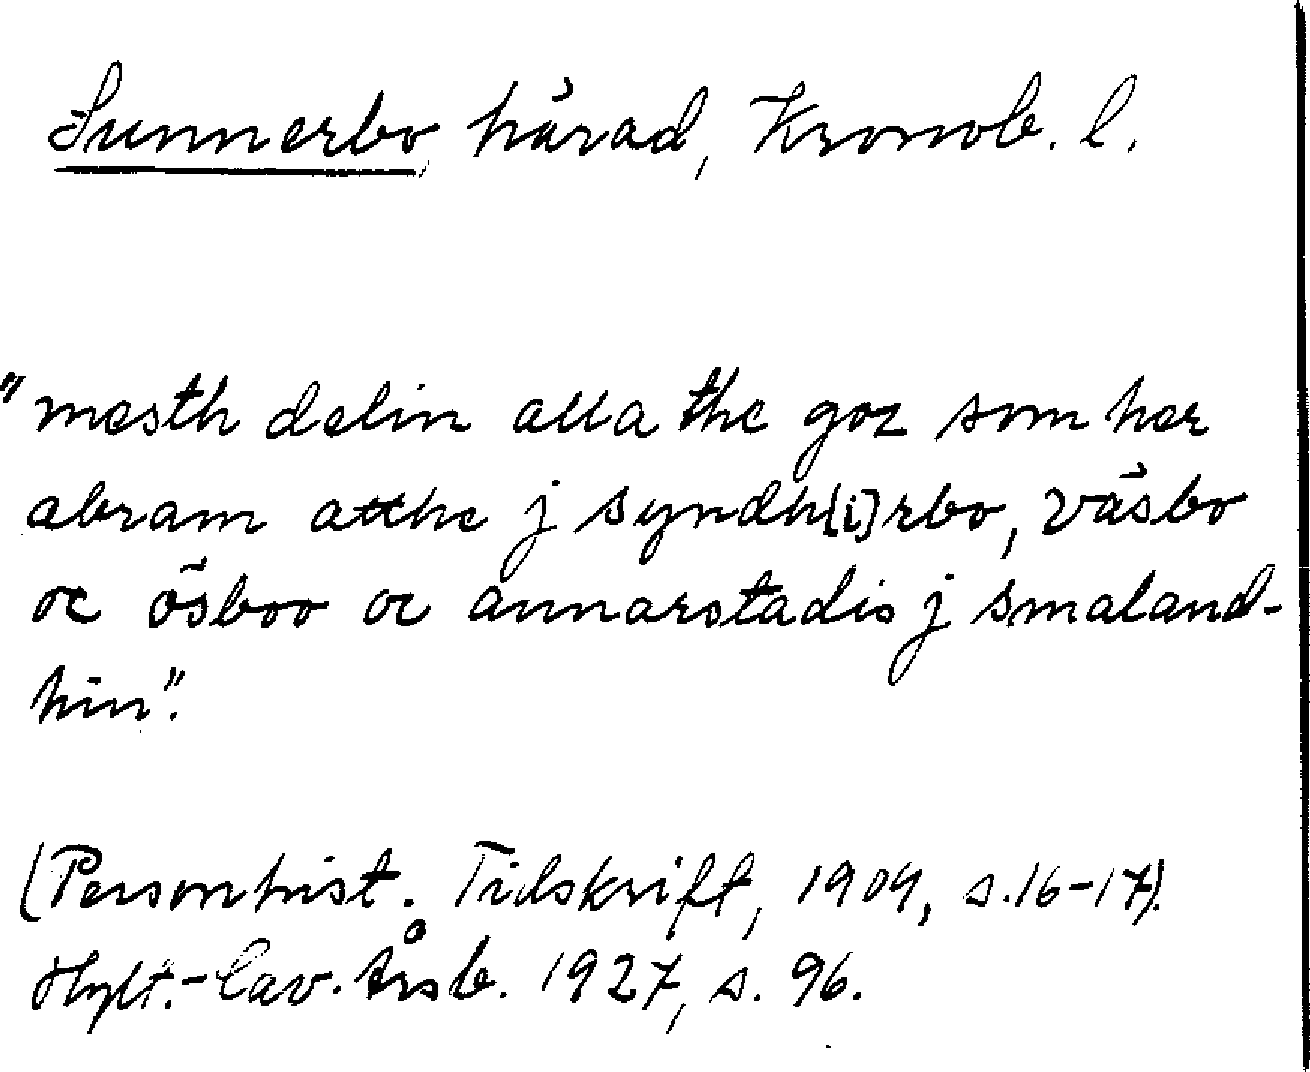 Sunnerbo härad, Kronob. l.
"mesth delin alla the goz som her
abram atthe j syndh[i]rbo, väsbo
oc ösboo oc annarstadis j smaland-
hin".
(Personhist. Tidskrift, 1909, s. 16-17).
Hylt.-Cav. Årsb. 1927, s. 96.